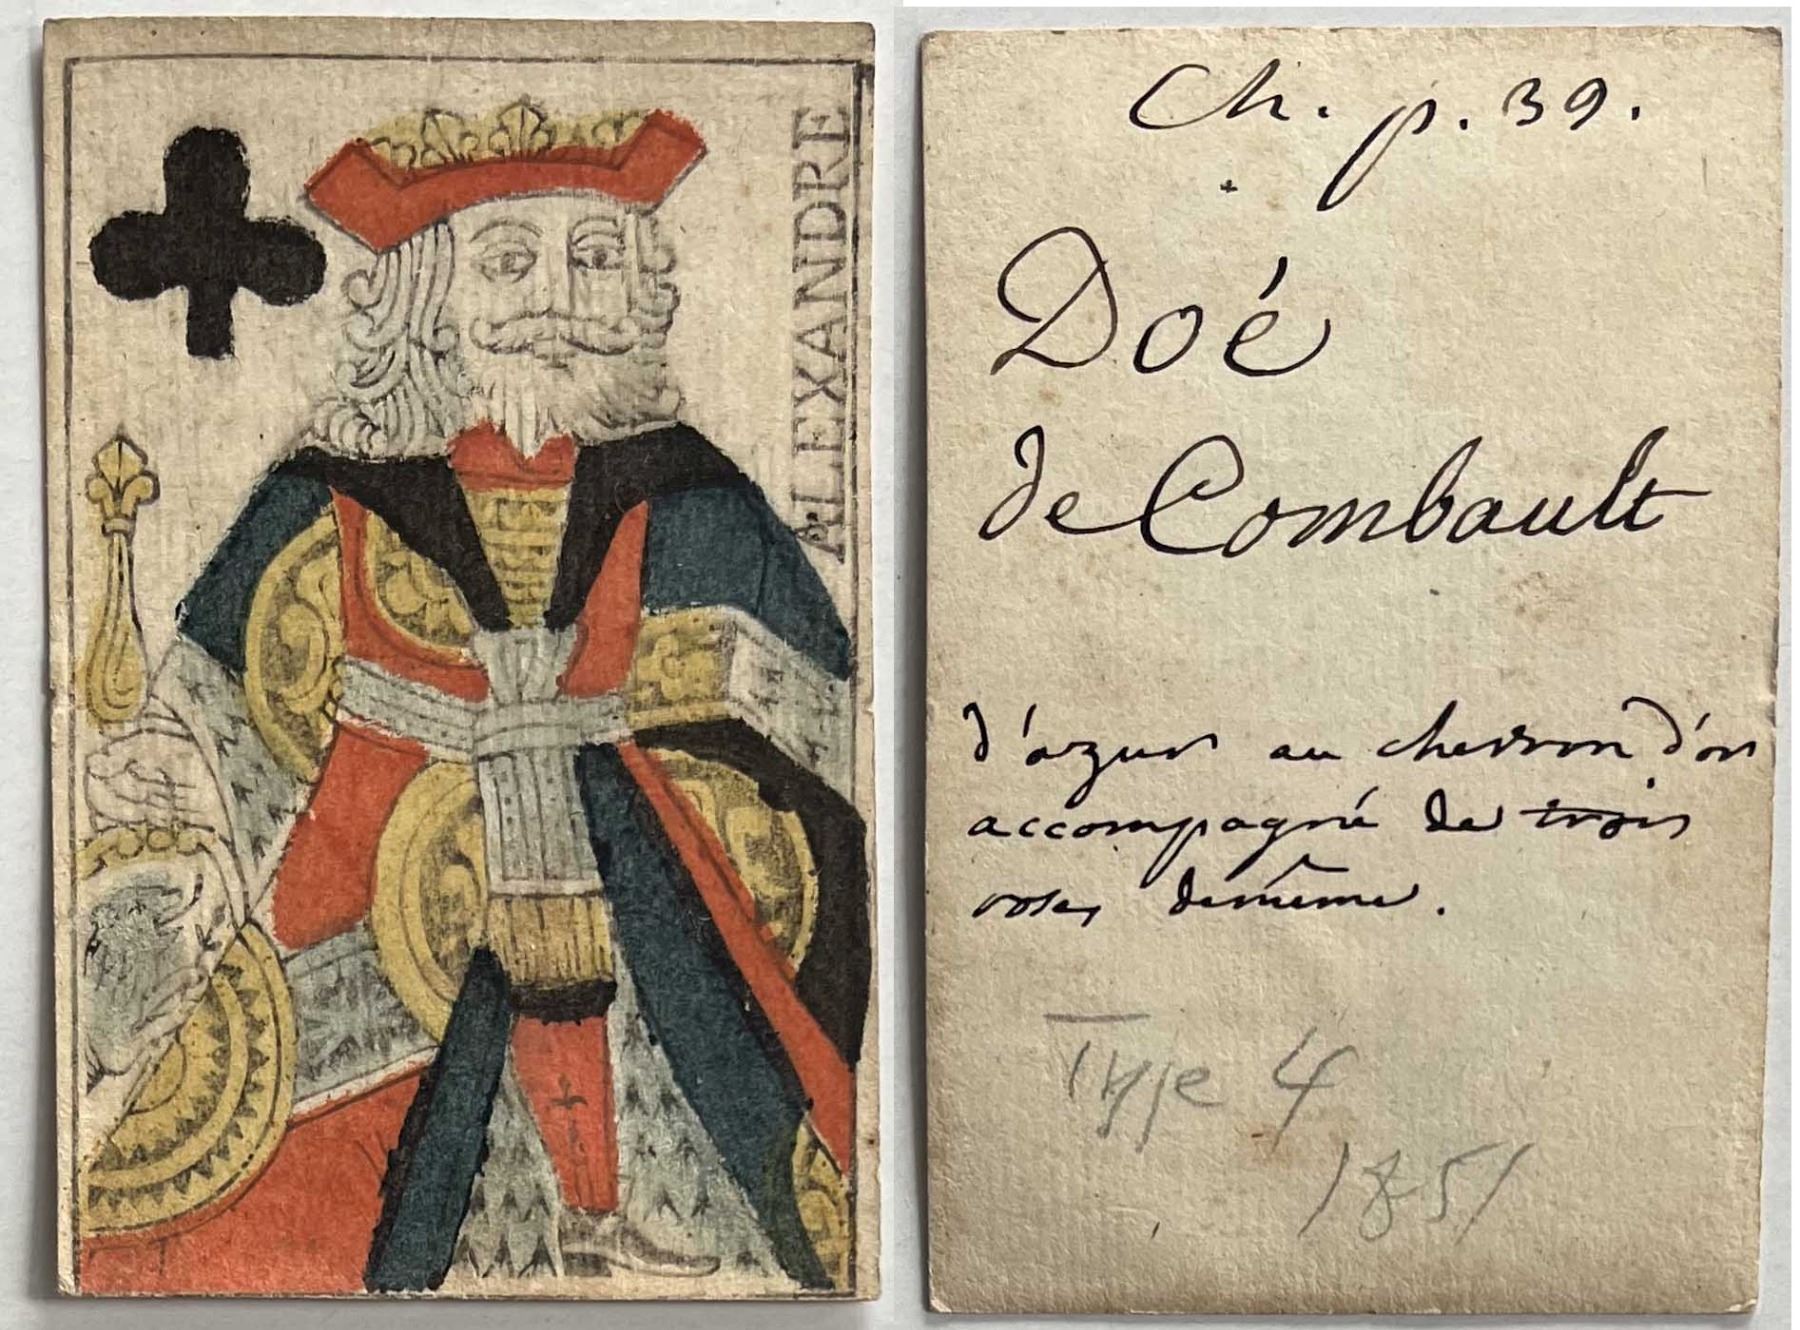 ALEXANDRE
Ch. p. 39.
Doé
de Combault
d'azur au chevron d'or
accompagné de trois
roses demême.
Type 4
1851